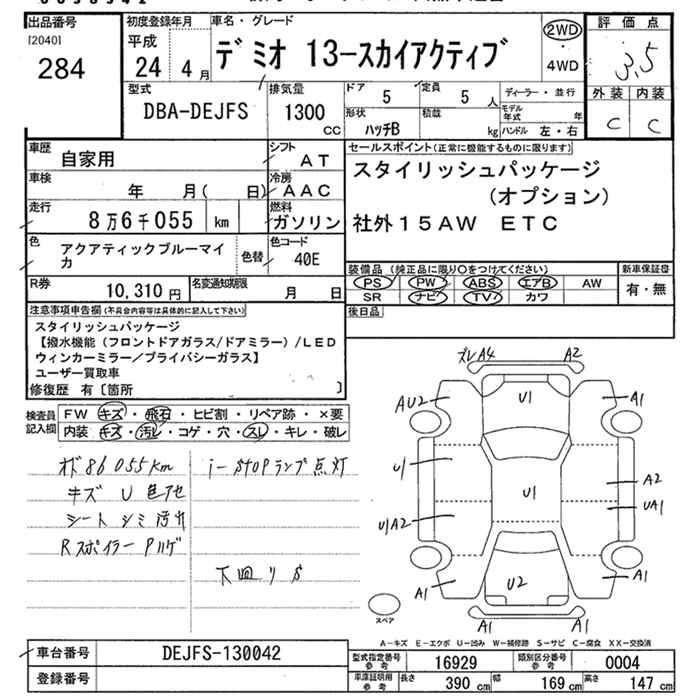 出品番号
[2040]
284
初度登録年月
平成
24 4月
車名・グレード
デミオ 13-スカイアクティブ
2WD
・
4WD
評価点
3.5
外装 内装
C C
型式
DBA-DEJFS
排気量
1300
CC
ドア
5
定員
5 人
形状
ハッチB
積載
kg
ディーラー・並行
モデル年式 年
ハンドル 左・右
車歴
自家用
シフト
AT
車検
年 月( 日)
冷房
AAC
走行
8万6千055 km
燃料
ガソリン
色
アクアティックブルーマイカ
色替
色コード
40E
R券
10,310円
名変通知期限
月 日
セールスポイント(正常に機能するものに限ります)
スタイリッシュパッケージ
(オプション)
社外15AW ETC
装備品(純正品に限り○をつけてください)
PS PW ABS エアB AW
SR ナビ TV カワ
新車保証書
有・無
後日品
注意事項申告欄(不具合内容等は具体的に記入して下さい)
スタイリッシュパッケージ
【撥水機能(フロントドアガラス/ドアミラー)/LED
ウィンカーミラー/プライバシーガラス】
ユーザー買取車
修復歴 有〔箇所 〕
検査員
記入欄
FW キズ・飛石・ヒビ割・リペア跡・×要
内装 キズ・汚レ・コゲ・穴・スレ・キレ・破レ
オド86055km
キズ U 色アセ
シート シミ 汚れ
Rスポイラー Pハゲ
i-STOPランプ点灯
下回りS
ズレA4 A2
AU2 U1 A1
U1 U1 A2
UA1
U1A2
A1 U2 A1
A1 A1
スペア
A-キズ E-エクボ U-凹み W-補修跡 S-サビ C-腐食 XX-交換済
車台番号
DEJFS-130042
登録番号
型式指定番号
参考
16929
類別区分番号
参考
0004
車庫証明用
参考
長さ 390 cm
幅 169 cm
高さ 147 cm